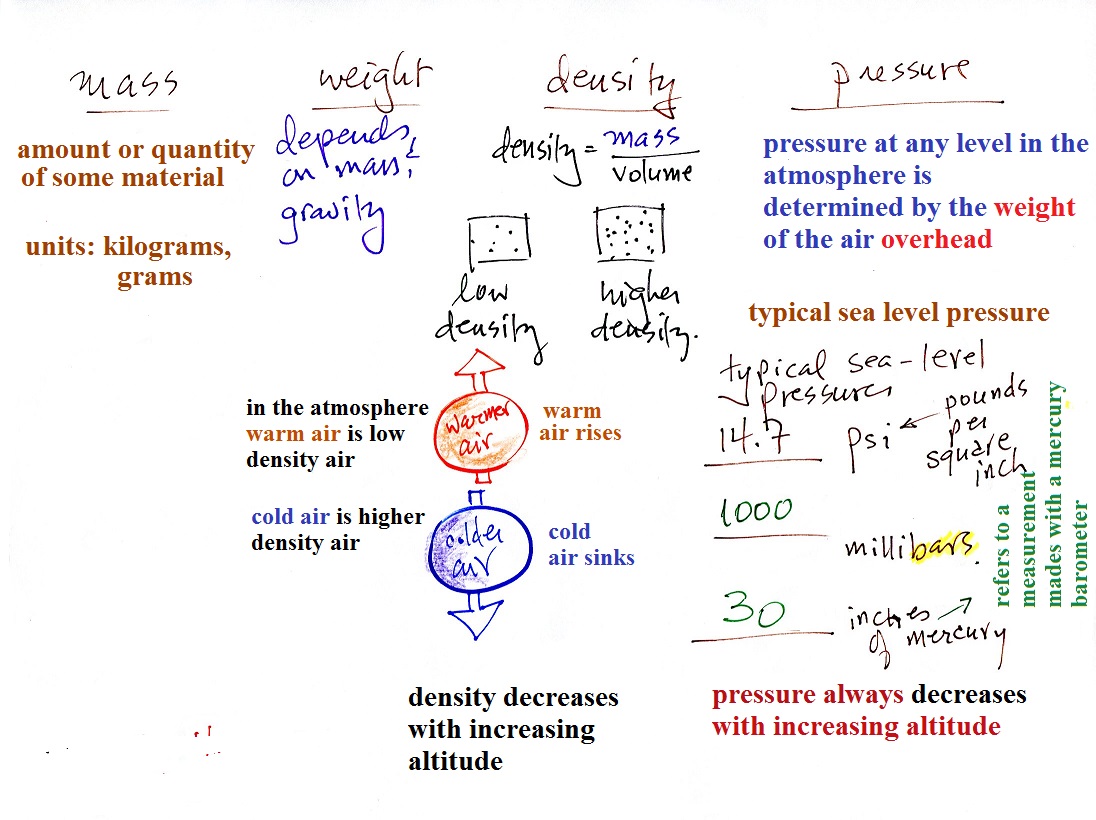 mass
amount or quantity
of some material
units: kilograms,
grams
weight
depends
on mass &
gravity
density
density = mass
volume
low
density
higher
density.
in the atmosphere
warm air is low
density air
warmer
air
warm
air rises
cold air is higher
density air
colder
air
cold
air sinks
density decreases
with increasing
altitude
pressure
pressure at any level in the
atmosphere is
determined by the weight
of the air overhead
typical sea level pressure
typical sea-level
pressures
14.7 psi
pounds
per
square
inch
1000
millibars.
30 inches
of mercury
refers to a
measurement
mades with a mercury
barometer
pressure always decreases
with increasing altitude